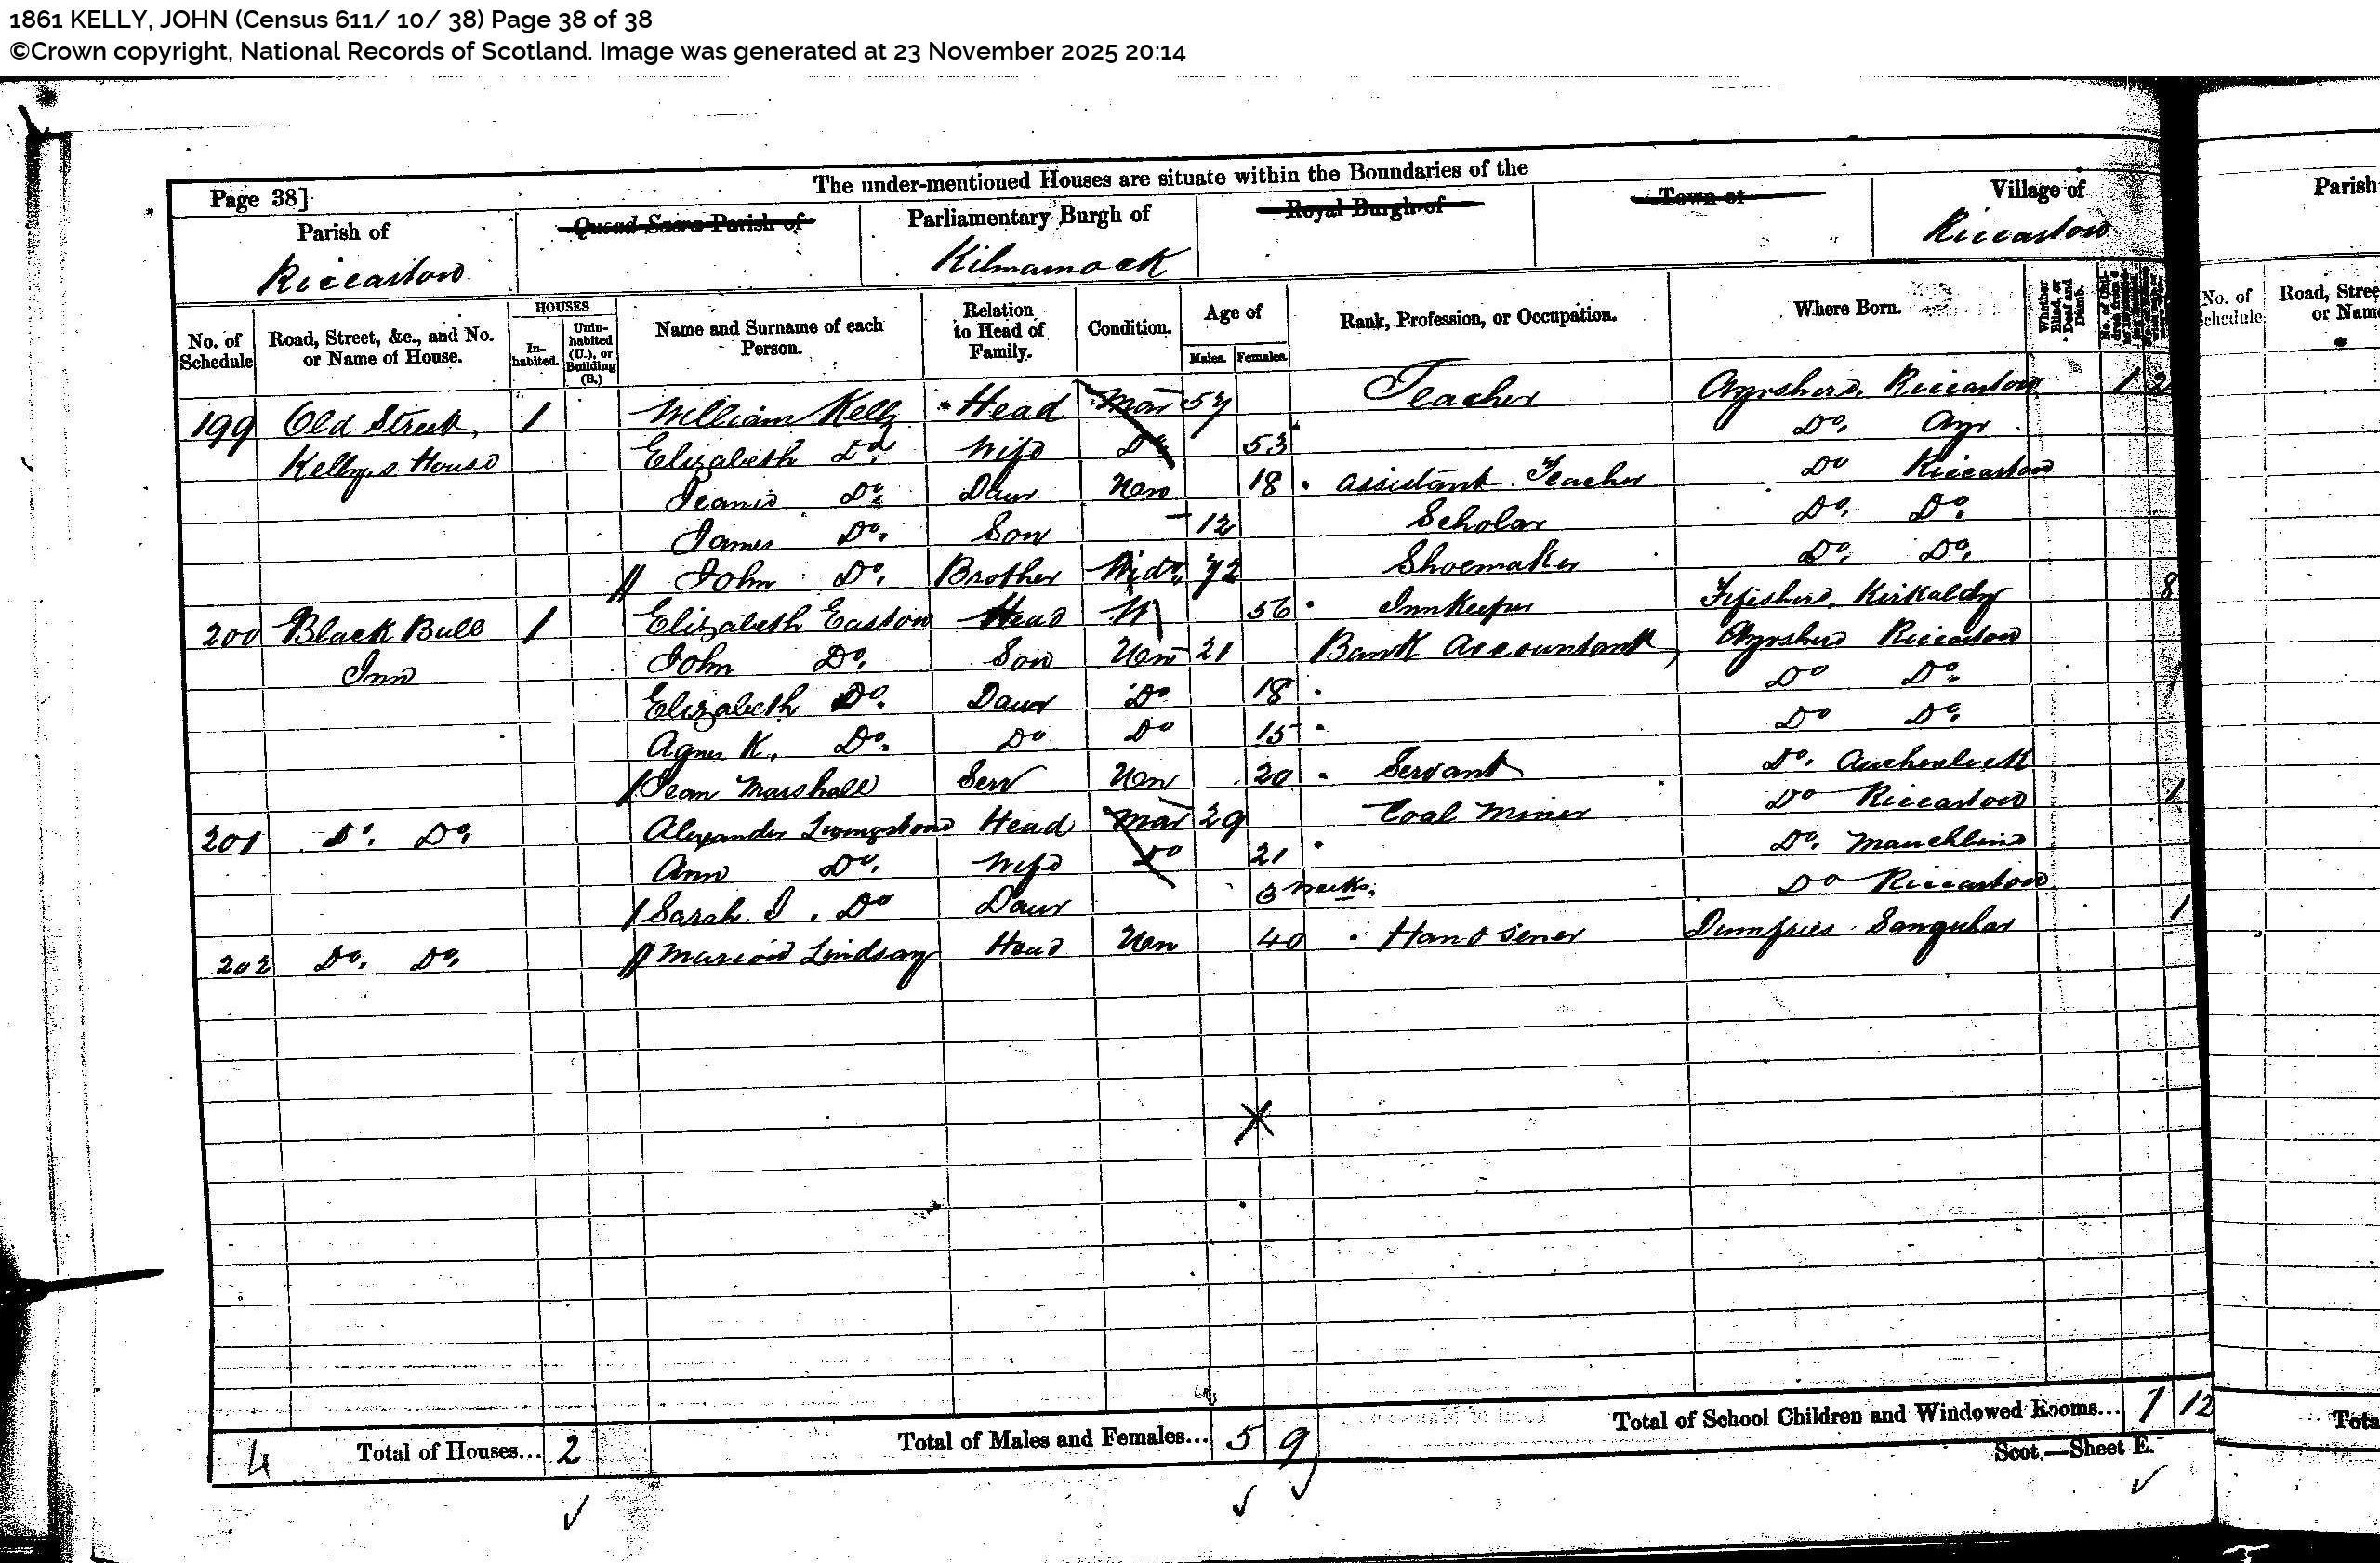 1861 KELLY, JOHN (Census 611/ 10/ 38) Page 38 of 38
©Crown copyright, National Records of Scotland. Image was generated at 23 November 2025 20:14
The under-mentioned Houses are situate within the Boundaries of the
Page 38]
Parish of Riccarton
Quoad Sacra Parish of
Parliamentary Burgh of Kilmarnock
Royal Burgh of
Town of
Village of Riccarton
Parish
No. of Schedule
Road, Street, &c., and No. or Name of House.
HOUSES
In-habited.
Unin-habited (U.), or Building (B.)
Name and Surname of each Person.
Relation to Head of Family.
Condition.
Age of
Males. Females.
Rank, Profession, or Occupation.
Where Born.
Whether Blind, or Deaf and Dumb.
No. of Schedule
Road, Stree
or Nam
199 Old Street, 1 William Kelly Head Mar 57 Teacher Ayrshire, Riccarton 1 2
Kelly,s House Elizabeth Do. Wife Do 53 Do, Ayr
Jeanie Do. Daur Unm 18 Assistant Teacher Do Riccarton
James Do. Son 12 Scholar Do, Do,
John Do, Brother Widr, 72 Shoemaker Do, Do,
200 Black Bull 1 Elizabeth Easton Head W 56 InnKeeper Fifeshire, Kirkaldy 8
Inn John Do, Son Unm 21 Bank Accountant, Ayrshire Riccarton
Elizabeth Do. Daur Do 18 Do Do.
Agnes K, Do. Do Do 15 Do Do,
Jean Marshall Serv Unm 20 Servant Do, Auchenleck
201 Do. Do, Alexander Livingstone Head Mar 29 Coal Miner Do Riccarton 1
Ann Do, Wife Do 21 Do, Mauchline
Sarah J. Do Daur 3 weeks. Do Riccarton
202 Do, Do, Marion Lindsay Head Unm 40 Hand sewer Dumfries Sanquhar 1
4 Total of Houses... 2
Total of Males and Females... 5 9
Total of School Children and Windowed Rooms... 1 12
Scot.—Sheet E.
Tota